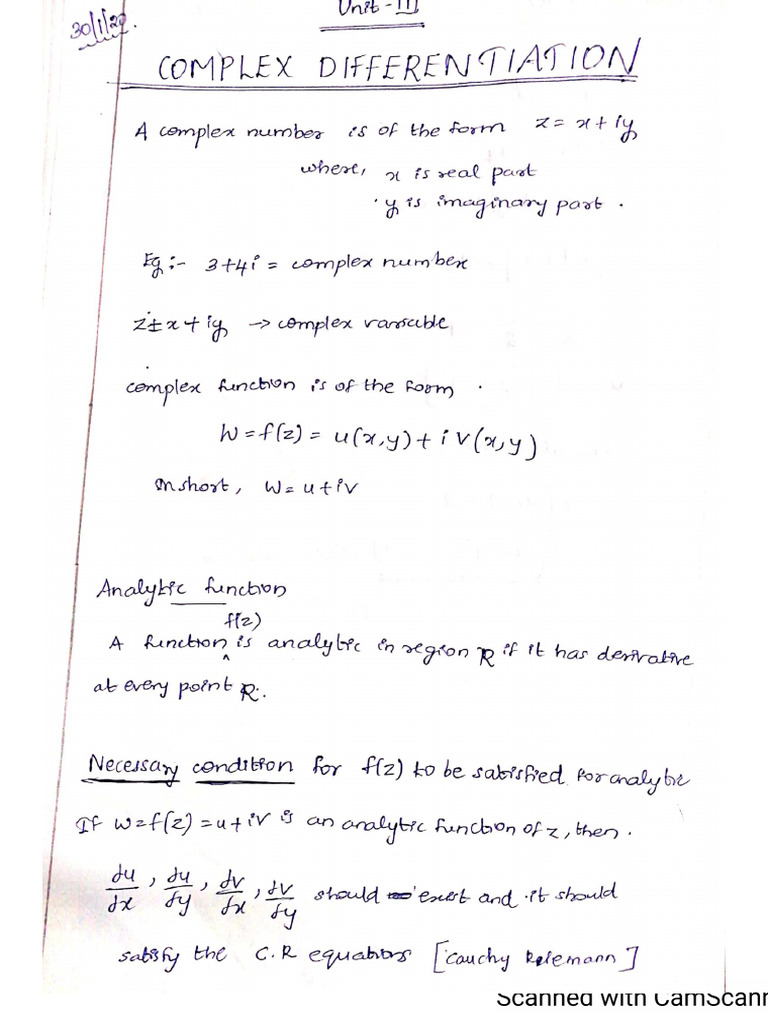 30/1/20.
Unit - III
COMPLEX DIFFERENTIATION
A complex number is of the form z = x + iy
where, x is real part
y is imaginary part .
Eg :- 3+4i = complex number
z = x + iy → complex variable
complex function is of the form .
W = f(z) = u(x,y) + i v(x,y)
In short, W = u + iv
Analytic function
f(z)
A function ^ is analytic in region R if it has derivative
at every point R.
Necessary condition for f(z) to be satisfied for analytic
If w = f(z) = u + iv is an analytic function of z, then .
∂u/∂x , ∂u/∂y , ∂v/∂x , ∂v/∂y should exist and it should
satisfy the C.R equations [Cauchy Reiemann]
Scanned with CamScann